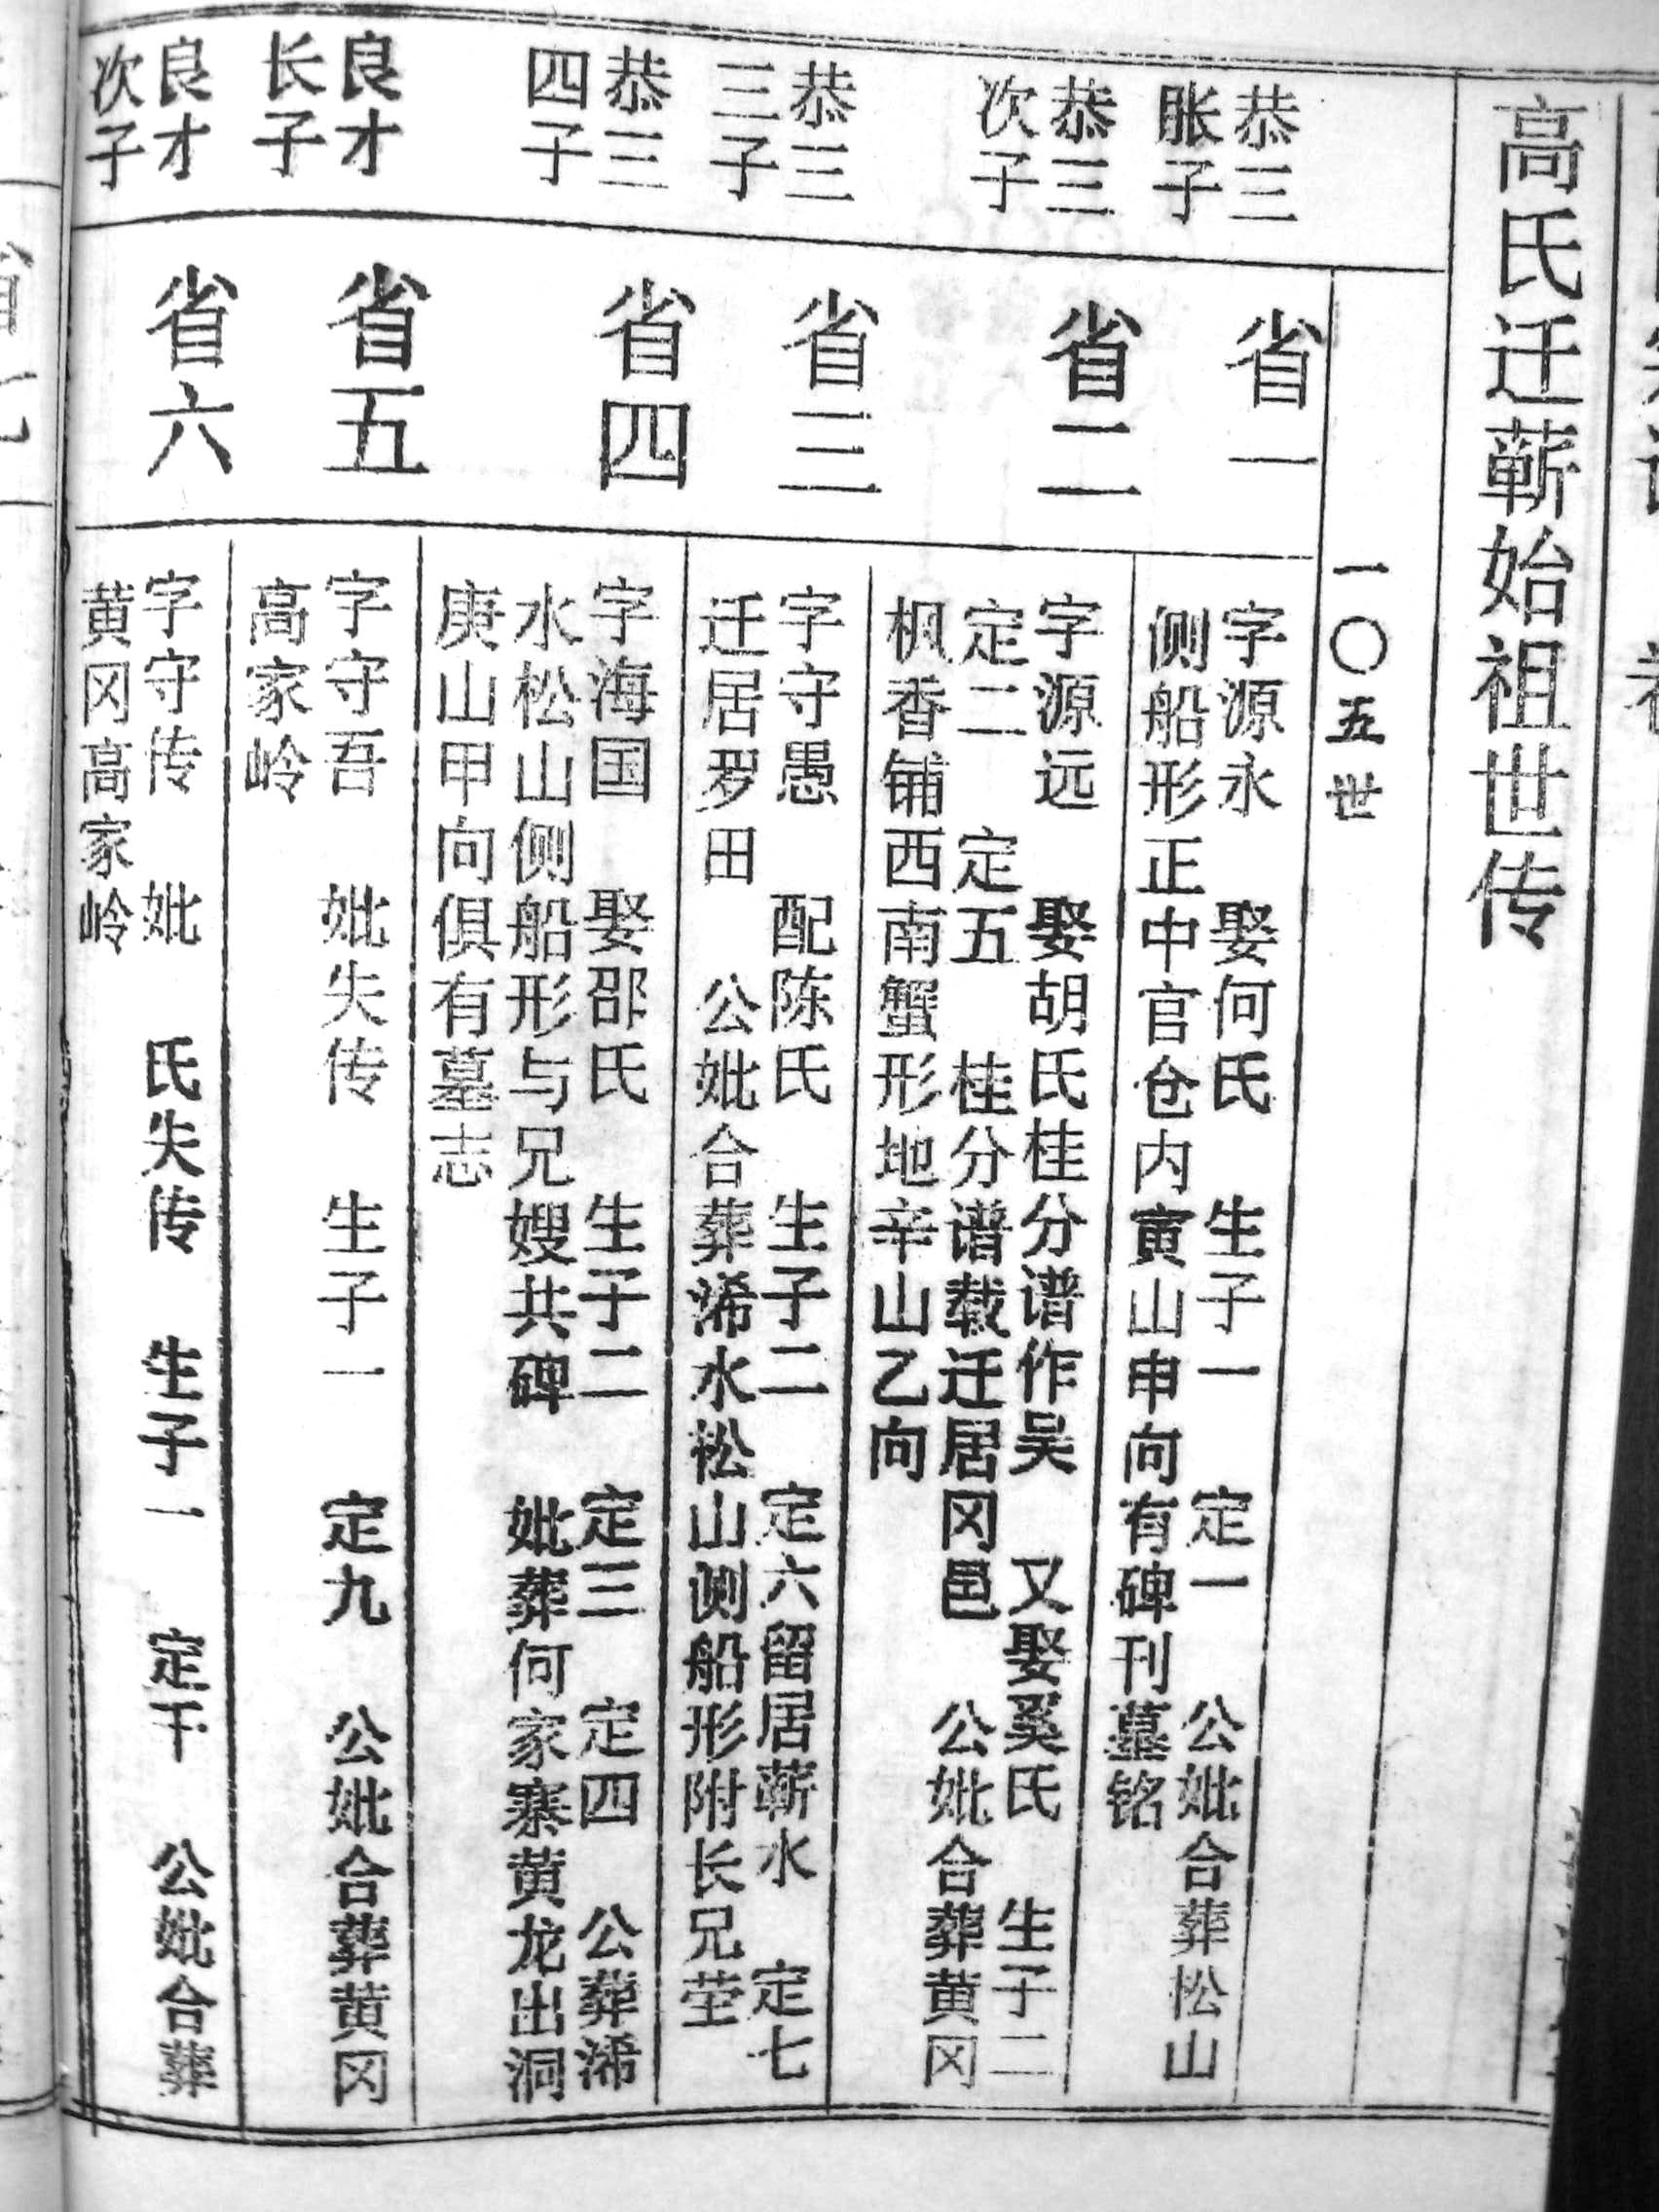 高氏迁蕲始祖世传
一〇五世
恭三
胀子
省一
字源永 娶何氏 生子一 定一 公妣合葬松山
侧船形正中官仓内寅山申向有碑刊墓铭
恭三
次子
省二
字源远 娶胡氏桂分谱作吴 又娶奚氏 生子二
定二 定五 桂分谱载迁居冈邑 公妣合葬黄冈
枫香铺西南蟹形地辛山乙向
恭三
三子
省三
字守愚 配陈氏 生子二 定六留居蕲水 定七
迁居罗田 公妣合葬浠水松山侧船形附长兄茔
恭三
四子
省四
字海国 娶邵氏 生子二 定三 定四 公葬浠
水松山侧船形与兄嫂共碑 妣葬何家寨黄龙出洞
庚山甲向俱有墓志
良才
长子
省五
字守吾 妣失传 生子一 定九 公妣合葬黄冈
高家岭
良才
次子
省六
字守传 妣 氏失传 生子一 定千 公妣合葬
黄冈高家岭